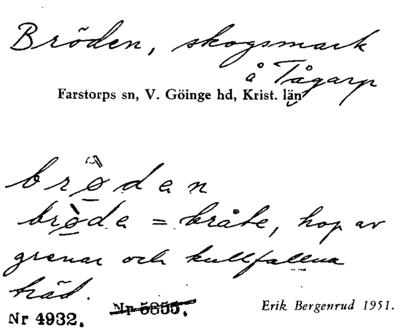 Bröden, skogsmark
å Tågarp
Farstorps sn, V. Göinge hd, Krist. län
brø̀den
brø̀de = bråte, hop av
grenar och kullfallna
träd.
Nr 4932. Nr 5355. Erik Bergenrud 1951.